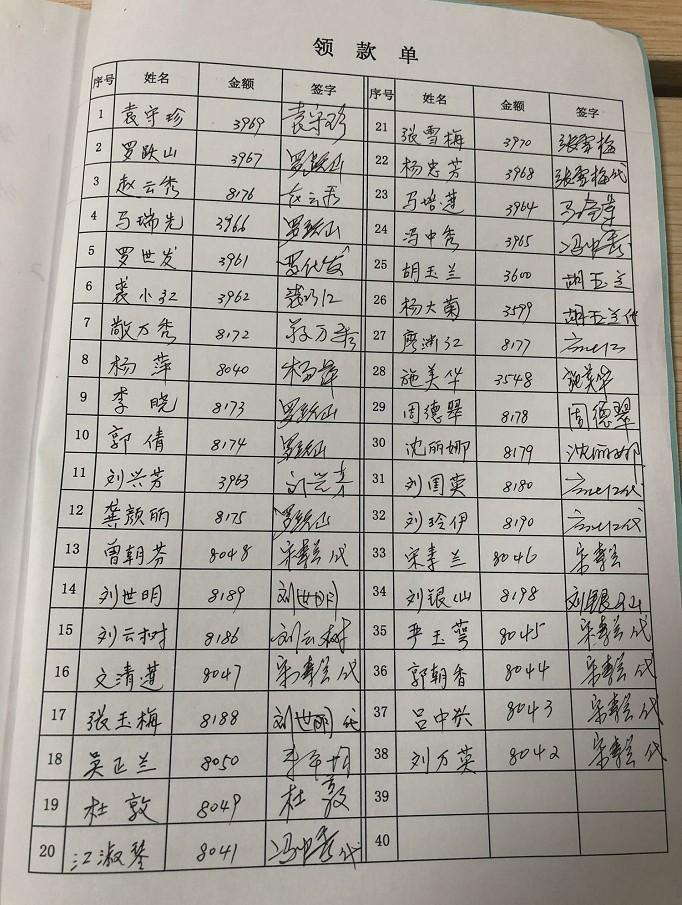 领款单
序号 姓名 金额 签字 序号 姓名 金额 签字
1 袁守珍 3969 袁守珍 21 张雪梅 3970 张雪梅
2 罗跃山 3967 罗跃山 22 杨忠芳 3968 张雪梅代
3 赵云秀 8176 赵云秀 23 马培莲 3964
4 马瑞先 3966 罗跃山 24 冯中秀 3965 冯中秀
5 罗世发 3961 罗世发 25 胡玉兰 3600 胡玉兰
6 裘小红 3962 裘小红 26 杨大菊 3599 胡玉兰代
7 敬万秀 8172 敬万秀 27 廖渊红 8177
8 杨萍 8040 杨萍 28 施美华 3548 施美华
9 李晓 8173 罗跃山 29 周德翠 8178 周德翠
10 郭倩 8174 罗跃山 30 沈丽娜 8179 沈丽娜
11 刘兴芳 3963 31 刘国英 8180
12 龚颜丽 8175 罗跃山 32 刘玲伊 8190
13 曾朝芬 8048 宋素兰代 33 宋素兰 8046 宋素兰
14 刘世明 8189 刘世明 34 刘银仙 8198 刘银仙
15 刘云树 8186 刘云树 35 严玉萼 8045 宋素兰代
16 文清莲 8047 宋素兰代 36 郭朝香 8044 宋素兰代
17 张玉梅 8188 刘世明代 37 吕中兴 8043 宋素兰代
18 吴正兰 8050 38 刘万英 8042 宋素兰代
19 杜敦 8049 杜敦 39
20 江淑琴 8041 冯中秀代 40